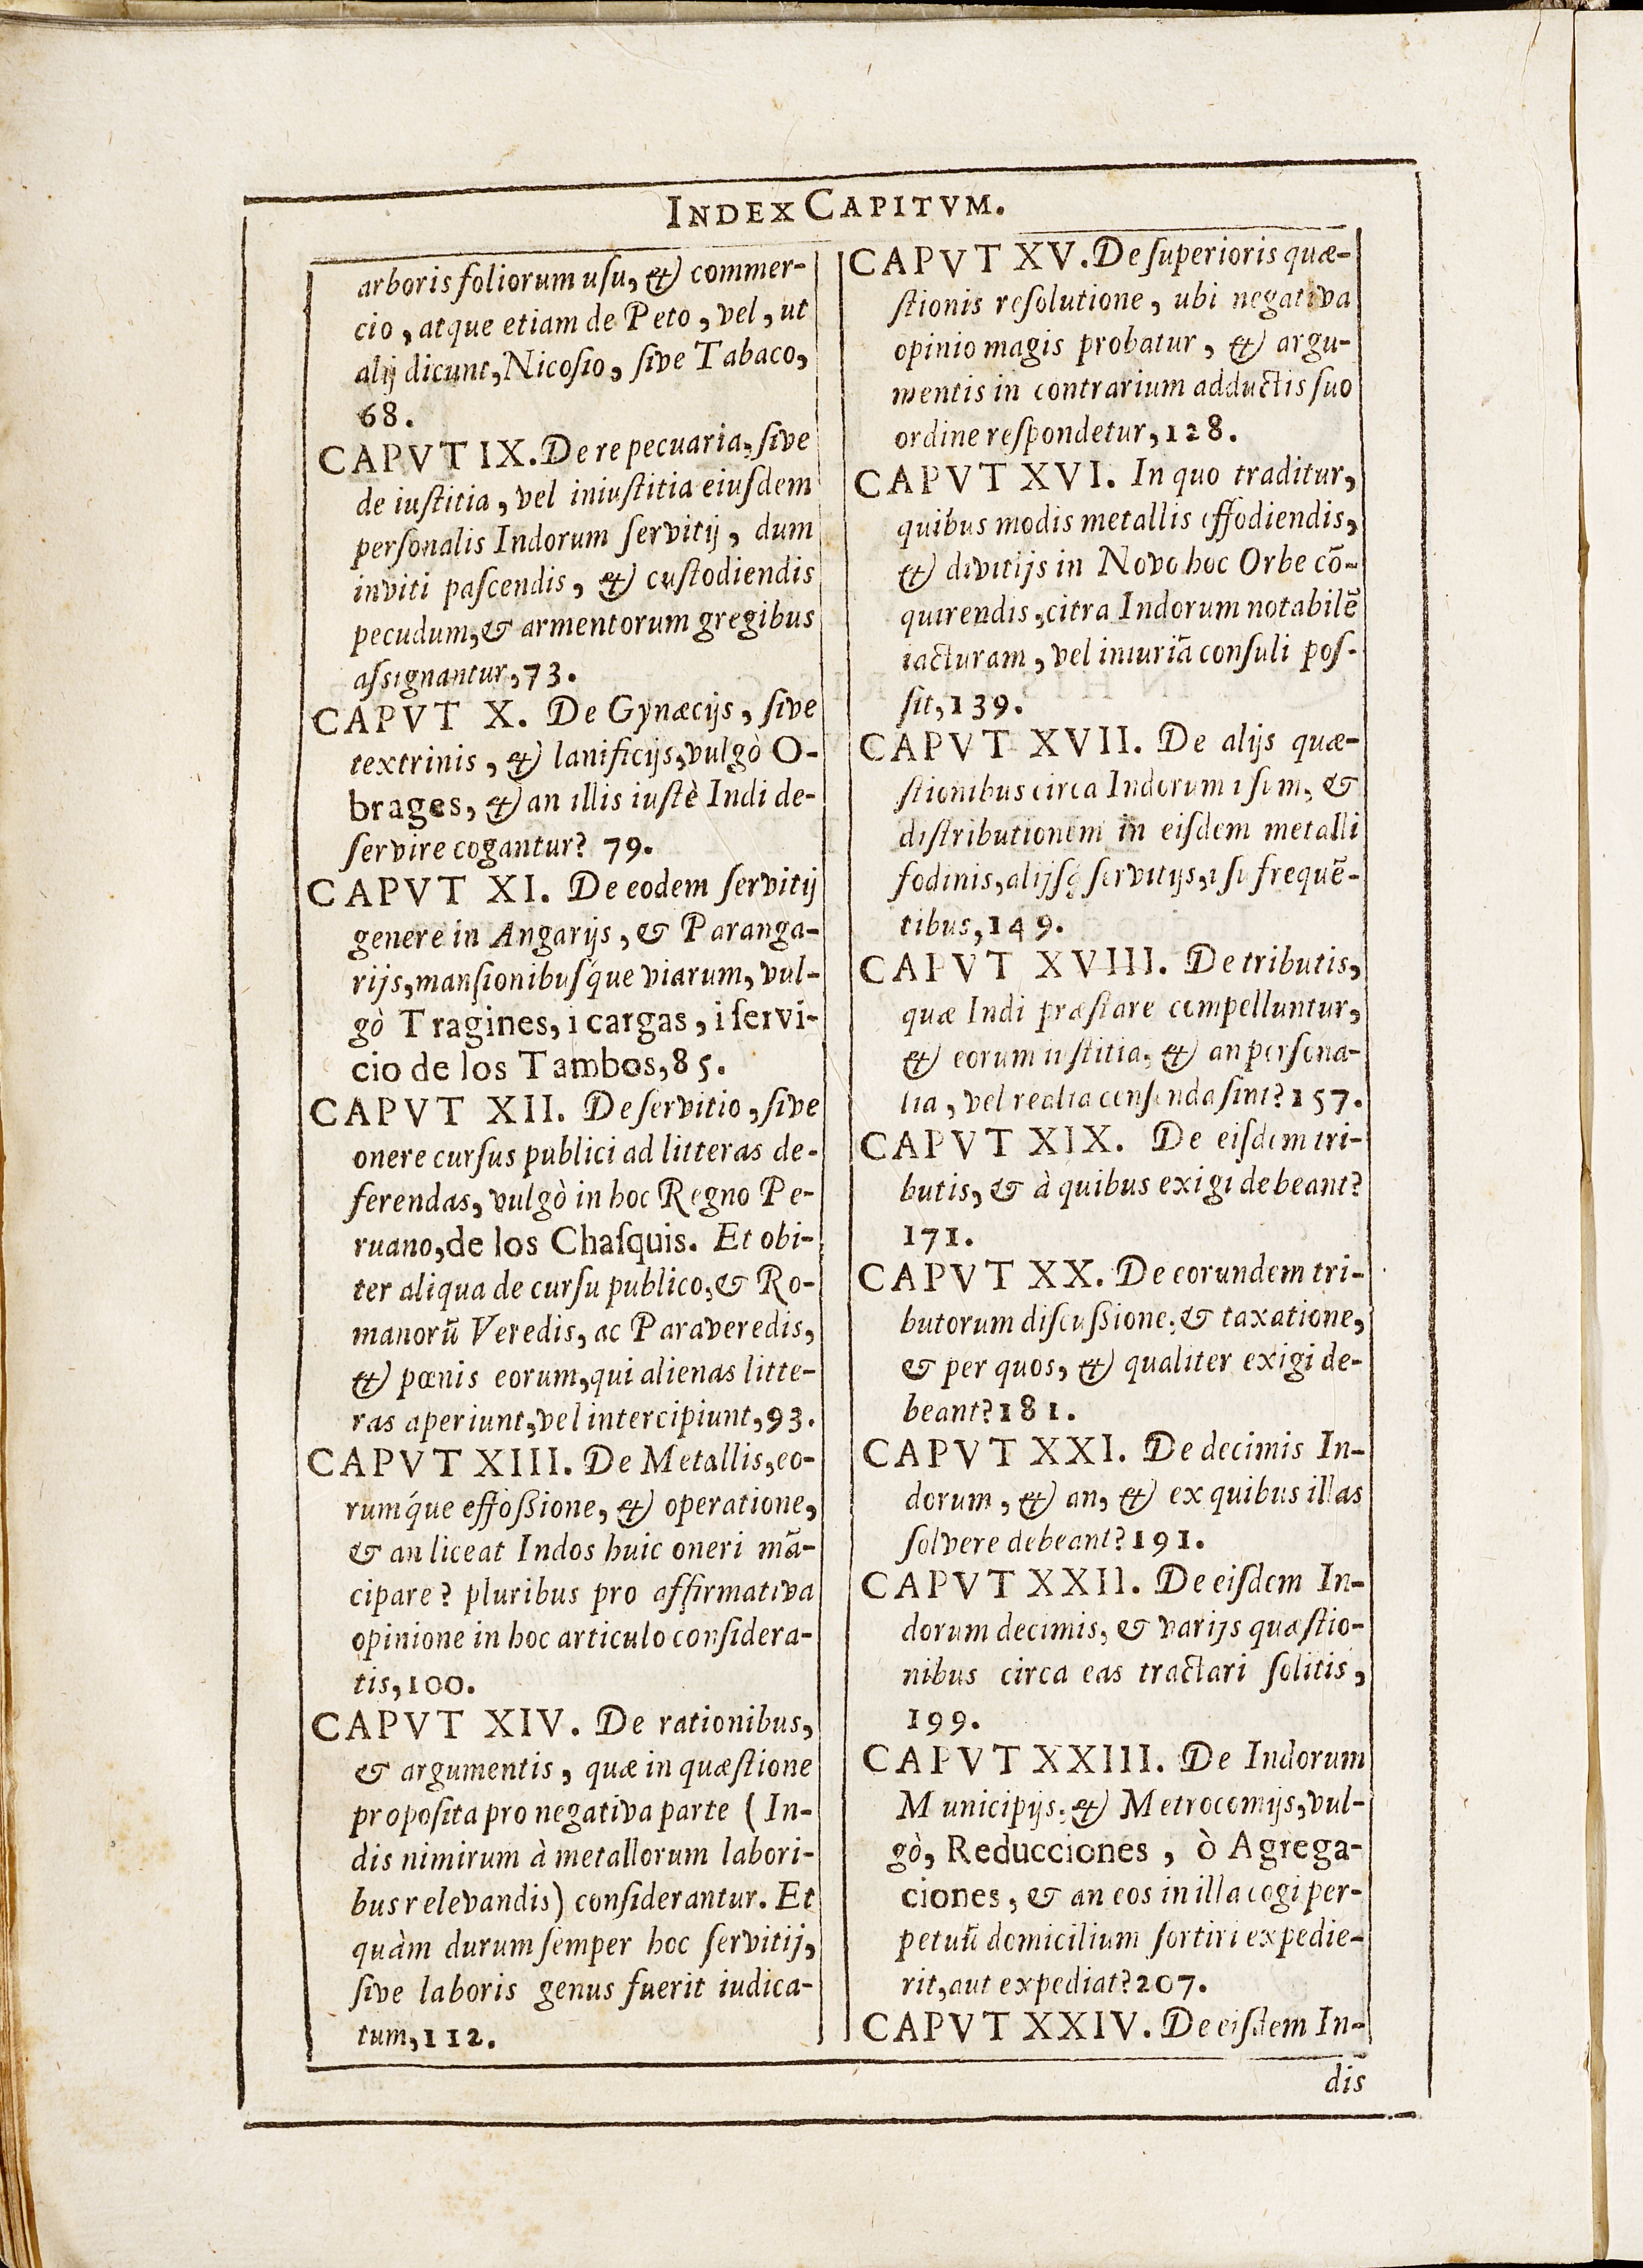 INDEX CAPITVM.
arboris foliorum usu, & commer-
cio, atque etiam de Peto, vel, ut
alij dicunt, Nicosio, sive Tabaco,
68.
CAPVT IX. De re pecuaria, sive
de iustitia, vel iniustitia eiusdem
personalis Indorum servitij, dum
inviti pascendis, & custodiendis
pecudum, & armentorum gregibus
assignantur, 73.
CAPVT X. De Gynæcijs, sive
textrinis, & lanificijs, vulgò O-
brages, & an illis iustè Indi de-
servire cogantur? 79.
CAPVT XI. De eodem servitij
genere in Angarijs, & Paranga-
rijs, mansionibusq́ue viarum, vul-
gò Tragines, i cargas, i servi-
cio de los Tambos, 85.
CAPVT XII. De servitio, sive
onere cursus publici ad litteras de-
ferendas, vulgò in hoc Regno Pe-
ruano, de los Chasquis. Et obi-
ter aliqua de cursu publico, & Ro-
manorū Veredis, ac Paraveredis,
& pœnis eorum, qui alienas litte-
ras aperiunt, vel intercipiunt, 93.
CAPVT XIII. De Metallis, eo-
rumq́ue effossione, & operatione,
& an liceat Indos huic oneri mā-
cipare? pluribus pro affirmativa
opinione in hoc articulo considera-
tis, 100.
CAPVT XIV. De rationibus,
& argumentis, quæ in quæstione
proposita pro negativa parte (In-
dis nimirum à metallorum labori-
bus relevandis) considerantur. Et
quàm durum semper hoc servitij,
sive laboris genus fuerit iudica-
tum, 112.
CAPVT XV. De superioris quæ-
stionis resolutione, ubi negativa
opinio magis probatur, & argu-
mentis in contrarium adductis suo
ordine respondetur, 128.
CAPVT XVI. In quo traditur,
quibus modis metallis effodiendis,
& divitijs in Novo hoc Orbe cō-
quirendis, citra Indorum notabilē
iacturam, vel iniuriā consuli pos-
sit, 139.
CAPVT XVII. De alijs quæ-
stionibus circa Indorum usum, &
distributionem in eisdem metalli
fodinis, alijsq; servitijs, usu frequē-
tibus, 149.
CAPVT XVIII. De tributis,
quæ Indi præstare compelluntur,
& eorum iustitia, & an persona-
lia, vel realia censenda sint? 157.
CAPVT XIX. De eisdem tri-
butis, & à quibus exigi debeant?
171.
CAPVT XX. De eorundem tri-
butorum discussione, & taxatione,
& per quos, & qualiter exigi de-
beant? 181.
CAPVT XXI. De decimis In-
dorum, & an, & ex quibus illas
solvere debeant? 191.
CAPVT XXII. De eisdem In-
dorum decimis, & varijs quæstio-
nibus circa eas tractari solitis,
199.
CAPVT XXIII. De Indorum
Municipijs, & Metrocomijs, vul-
gò, Reducciones, ò Agrega-
ciones, & an eos in illa cogi per-
petuū domicilium sortiri expedie-
rit, aut expediat? 207.
CAPVT XXIV. De eisdem In-
dis